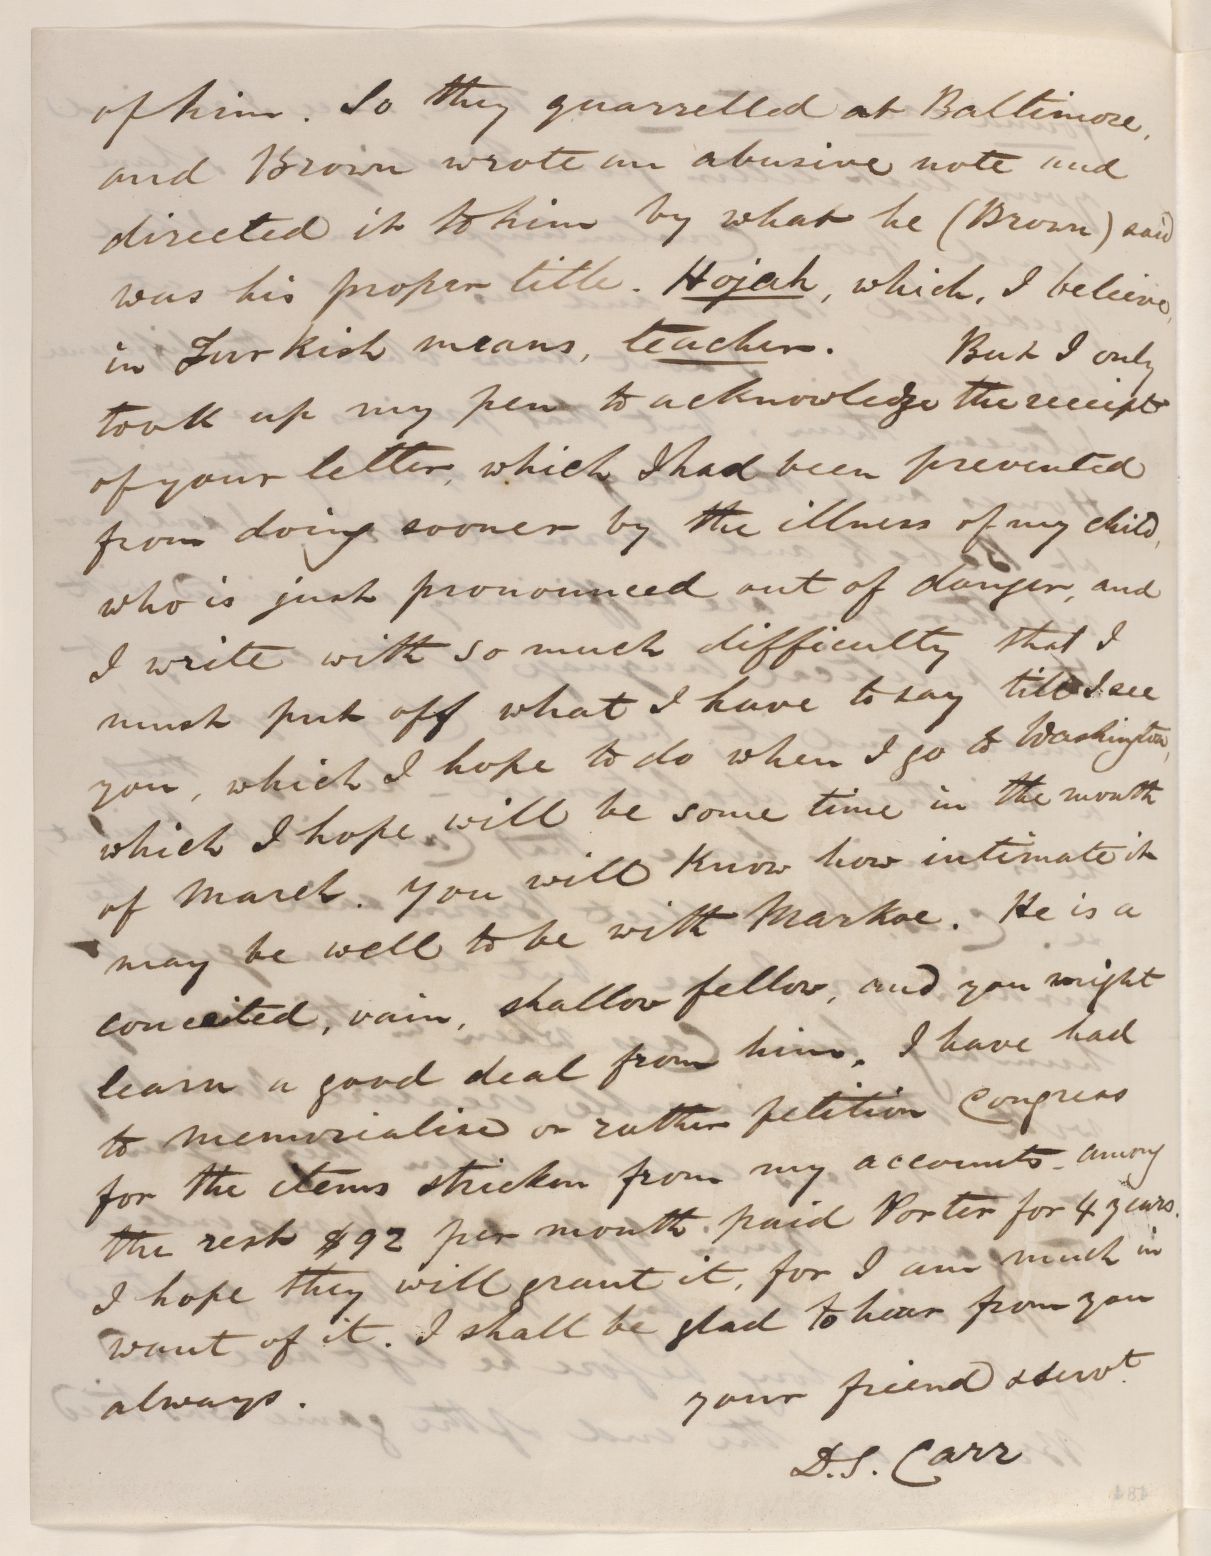 of him. So they quarrelled at Baltimore,
and Brown wrote an abusive note and
directed it to him by what he (Brown) said
was his proper title. Hojah, which, I believe,
in Turkish means, teacher. But I only
took up my pen to acknowledge the receipt
of your letter, which I had been prevented
from doing sooner by the illness of my child,
who is just pronounced out of danger, and
I write with so much difficulty that I
must put off what I have to say till I see
you, which I hope to do when I go to Washington,
which I hope will be some time in the month
of March. You will know how intimate it
may be well to be with Markoe. He is a
conceited, vain, shallow fellow, and you might
learn a good deal from him. I have had
to memorialise or rather petition Congress
for the items stricken from my accounts - among
the rest $92 per month paid Porter for 4 years.
I hope they will grant it, for I am much in
want of it. I shall be glad to hear from you
always. your friend & servt.
D.S. Carr